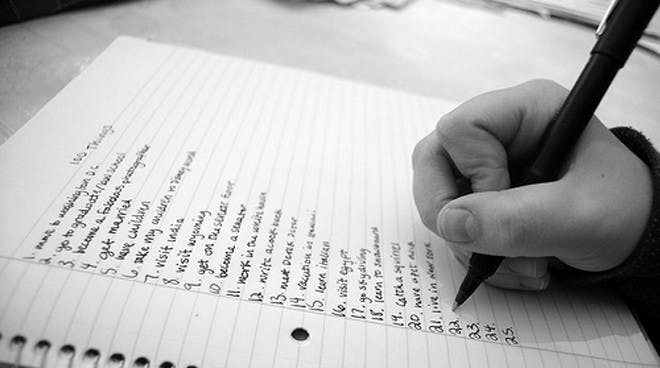 100 Things
1. move to washington D.C.
2. go to graduate/law school
3. become a fabulous photographer
4. get married
5. have children
6. take my children to disney world
7. visit India
8. visit wyoming
9. get on the senate floor
10. become a senator
11. work in the white house
12. write a cook book
13. meet Derek Jeter
14. vacation in Hawaii
15. learn italian
16. visit Egypt
17. go skydiving
18. learn to snowboard
19. catch a squirrel
20. have a pet duck
21. live in new york
22.
23.
24.
25.